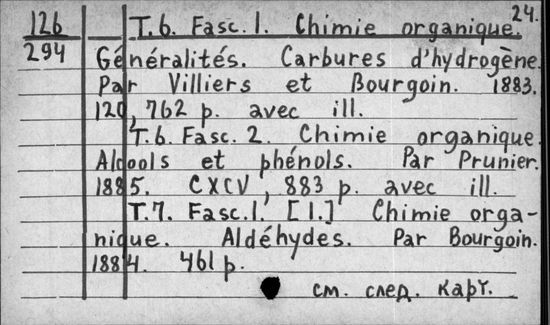 24.
126 T.6. Fasc.1. Chimie organique.
294 Généralités. Carbures d'hydrogène.
Par Villiers et Bourgoin. 1883.
120, 762 p. avec ill.
T.6. Fasc.2. Chimie organique.
Alcools et phénols. Par Prunier.
1885. CXCV, 883 p. avec ill.
T.7. Fasc.1. [1.] Chimie orga-
nique. Aldéhydes. Par Bourgoin.
1884. 461 p.
см. след. карт.